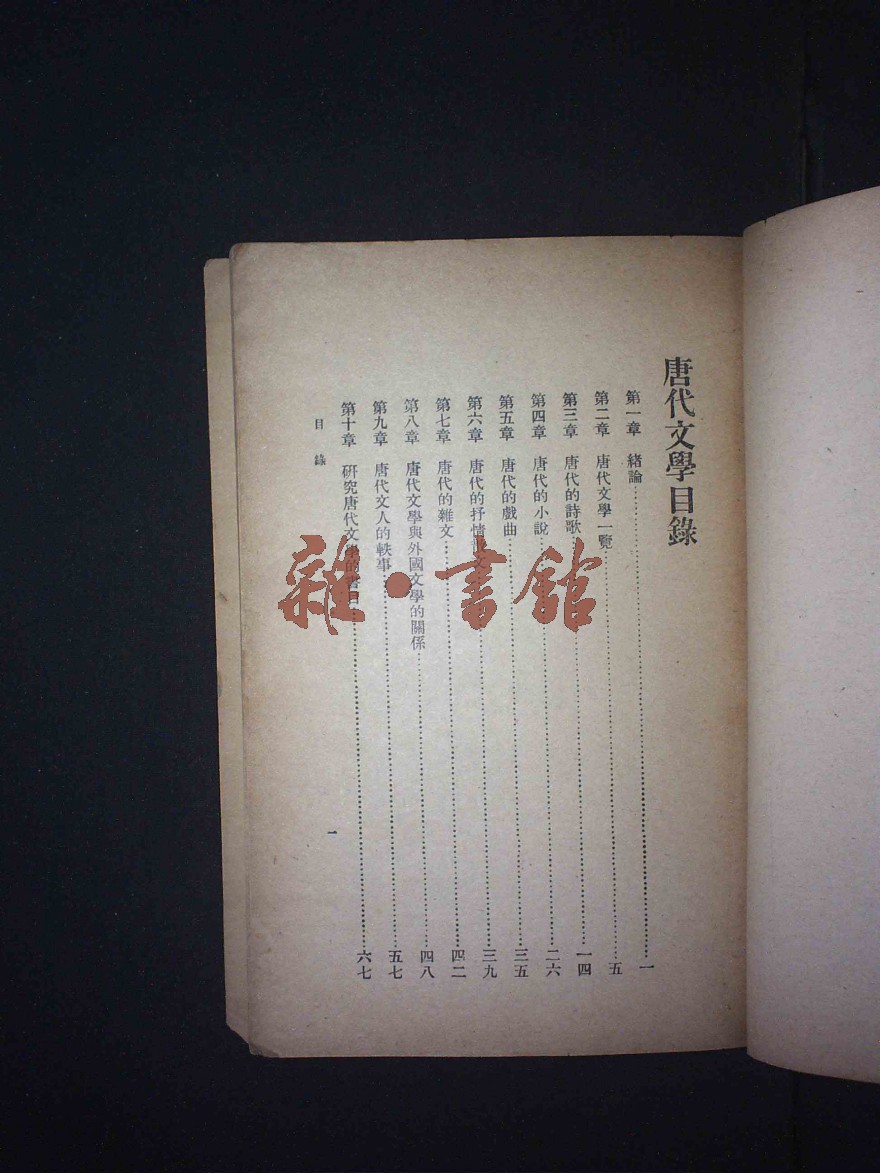 唐代文學目錄
第一章 緒論……一
第二章 唐代文學一覽……五
第三章 唐代的詩歌……一四
第四章 唐代的小說……二六
第五章 唐代的戲曲……三五
第六章 唐代的抒情散文……三九
第七章 唐代的雜文……四二
第八章 唐代文學與外國文學的關係……四八
第九章 唐代文人的軼事……五七
第十章 研究唐代文學的書目……六七
目錄 一
雜·書館